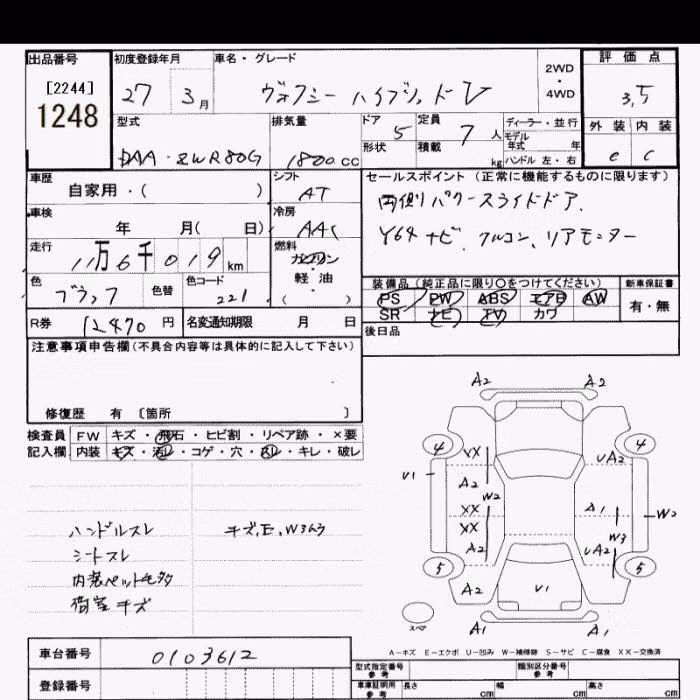 出品番号 初度登録年月 車名・グレード 2WD・4WD 評価点
[2244] 1248 27 3月 ヴォクシー ハイブリッド V 3,5
型式 排気量 ドア 5 定員 7人 ディーラー・並行 外装 内装
DAA-ZWR80G 1800cc 形状 積載 kg モデル年式 年 ハンドル 左・右 e C
車歴 シフト セールスポイント (正常に機能するものに限ります)
自家用・( ) AT 両側パワースライドドア、
車検 冷房
年 月( 日) AAC Y64 ナビ、フルコン、リアモニター
走行 燃料
11万6千019km ガソリン・軽油
色 色替 色コード ( ) 装備品(純正品に限り〇をつけてください) 新車保証書
ブラック 221 PS PW ABS エアB AW 有・無
SR ナビ TV カワ
R券 12470円 名変通知期限 月 日 後日品
注意事項申告欄(不具合内容等は具体的に記入して下さい)
修復歴 有 〔箇所 〕
検査員 FW キズ・飛石・ヒビ割・リペア跡・×要
記入欄 内装 キズ・汚レ・コゲ・穴・スレ・キレ・破レ
ハンドルスレ キズ,E,W3363
シートスレ
内装ペット毛多
荷室キズ
A2 A2
4 XX UA2 4
V1 A2 W2 A1 W2
XX
XX W3
5 A2 UA2 5
A2 V1
スペア A1 A1
A-キズ E-エクボ U-凹み W-補修跡 S-サビ C-腐食 XX-交換済
車台番号 0103612
型式指定番号 参考 類別区分番号 参考
登録番号 車庫証明用 参考 長さ cm 幅 cm 高さ cm